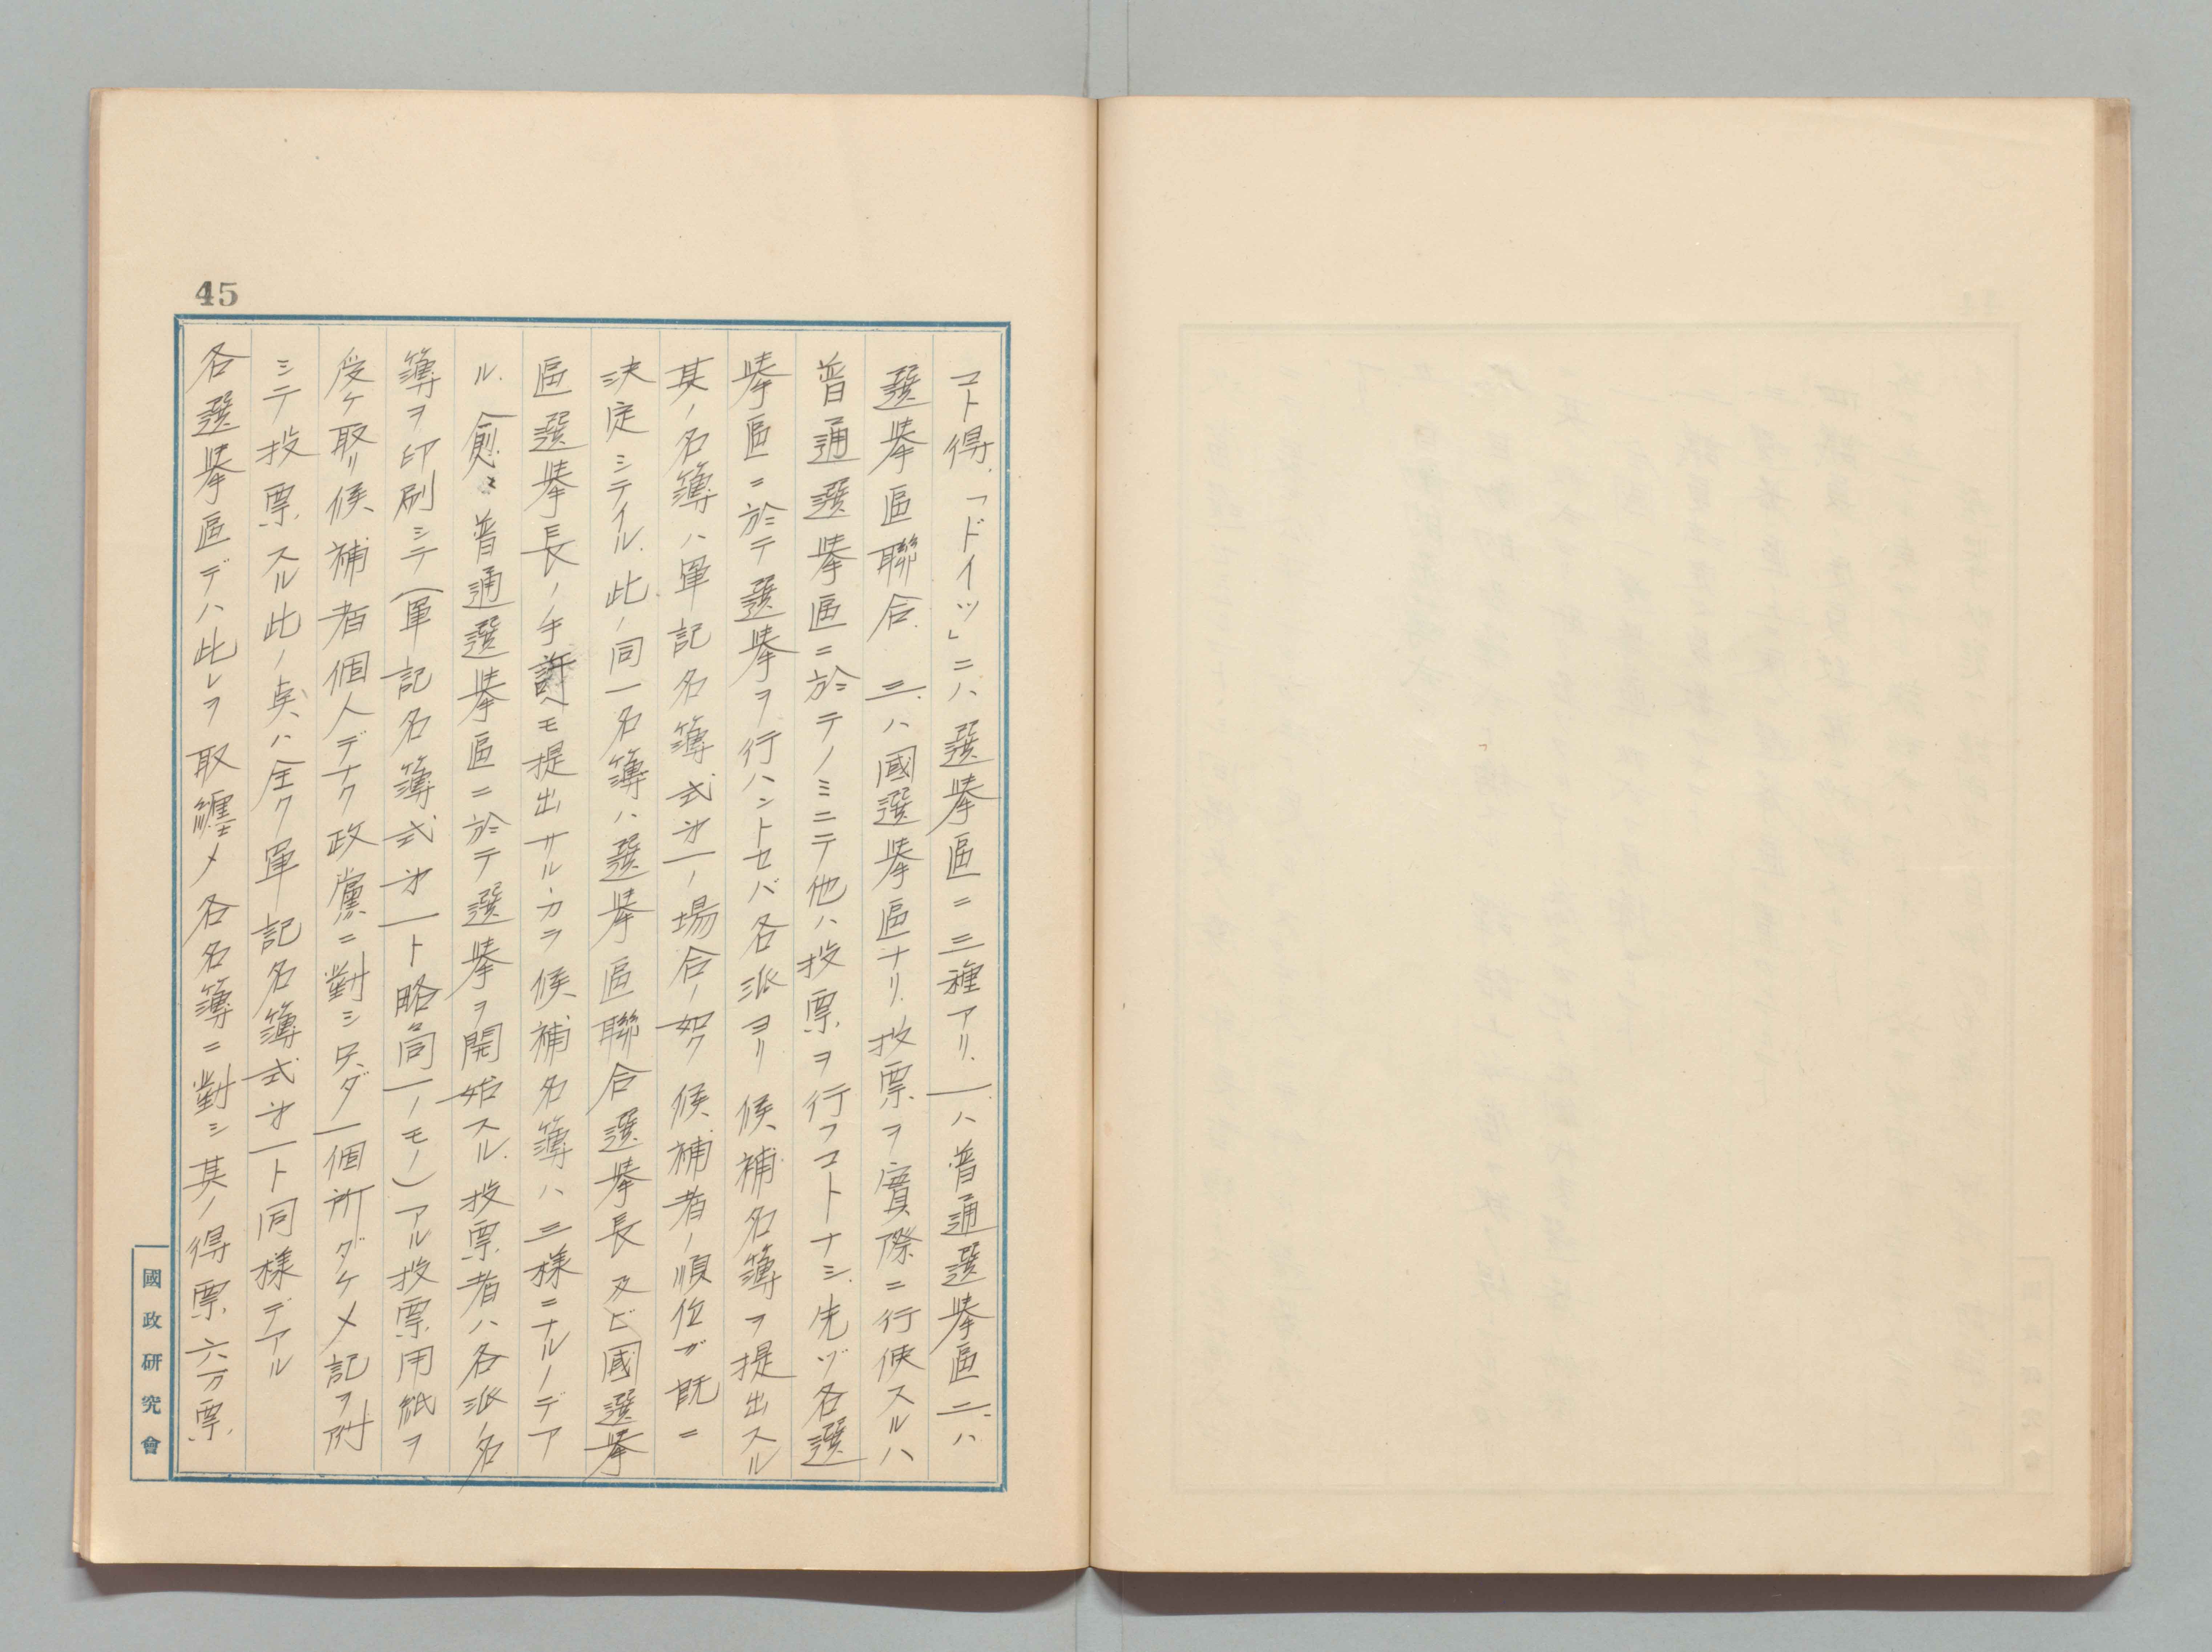 45
コト得.「ドイツ」ニハ選擧區ニ三種アリ.一ハ普通選擧區二.ハ
選擧區聯合.三.ハ國選擧區ナリ.投票ヲ實際ニ行使スルハ
普通選擧區ニ於テノミニテ他ハ投票ヲ行フコトナシ.先ヅ各選
擧區ニ於テ選擧ヲ行ハントセバ各派ヨリ候補名簿ヲ提出スル
其ノ名簿ハ單記名簿式才一ノ場合ノ如ク候補者ノ順位ガ既ニ
決定シテイル.此ノ同一名簿ハ選擧區聯合選擧長及ビ國選擧
區選擧長ノ手許ヘモ提出サルヽカラ候補名簿ハ三様ニナルノデア
ル.愈〻普通選擧區ニ於テ選擧ヲ開始スル.投票者ハ各派ノ名
簿ヲ印刷シテ(單記名簿式才一ト略同一ノモノ)アル投票用紙ヲ
受ケ取リ候補者個人デナク政黨ニ對シ只ダ一個所ダケ〆記ヲ附
シテ投票スル此ノ奌ハ全ク單記名簿式才一ト同様デアル
各選擧區デハ此レヲ取纏メ各名簿ニ對シ其ノ得票六万票
國政研究會